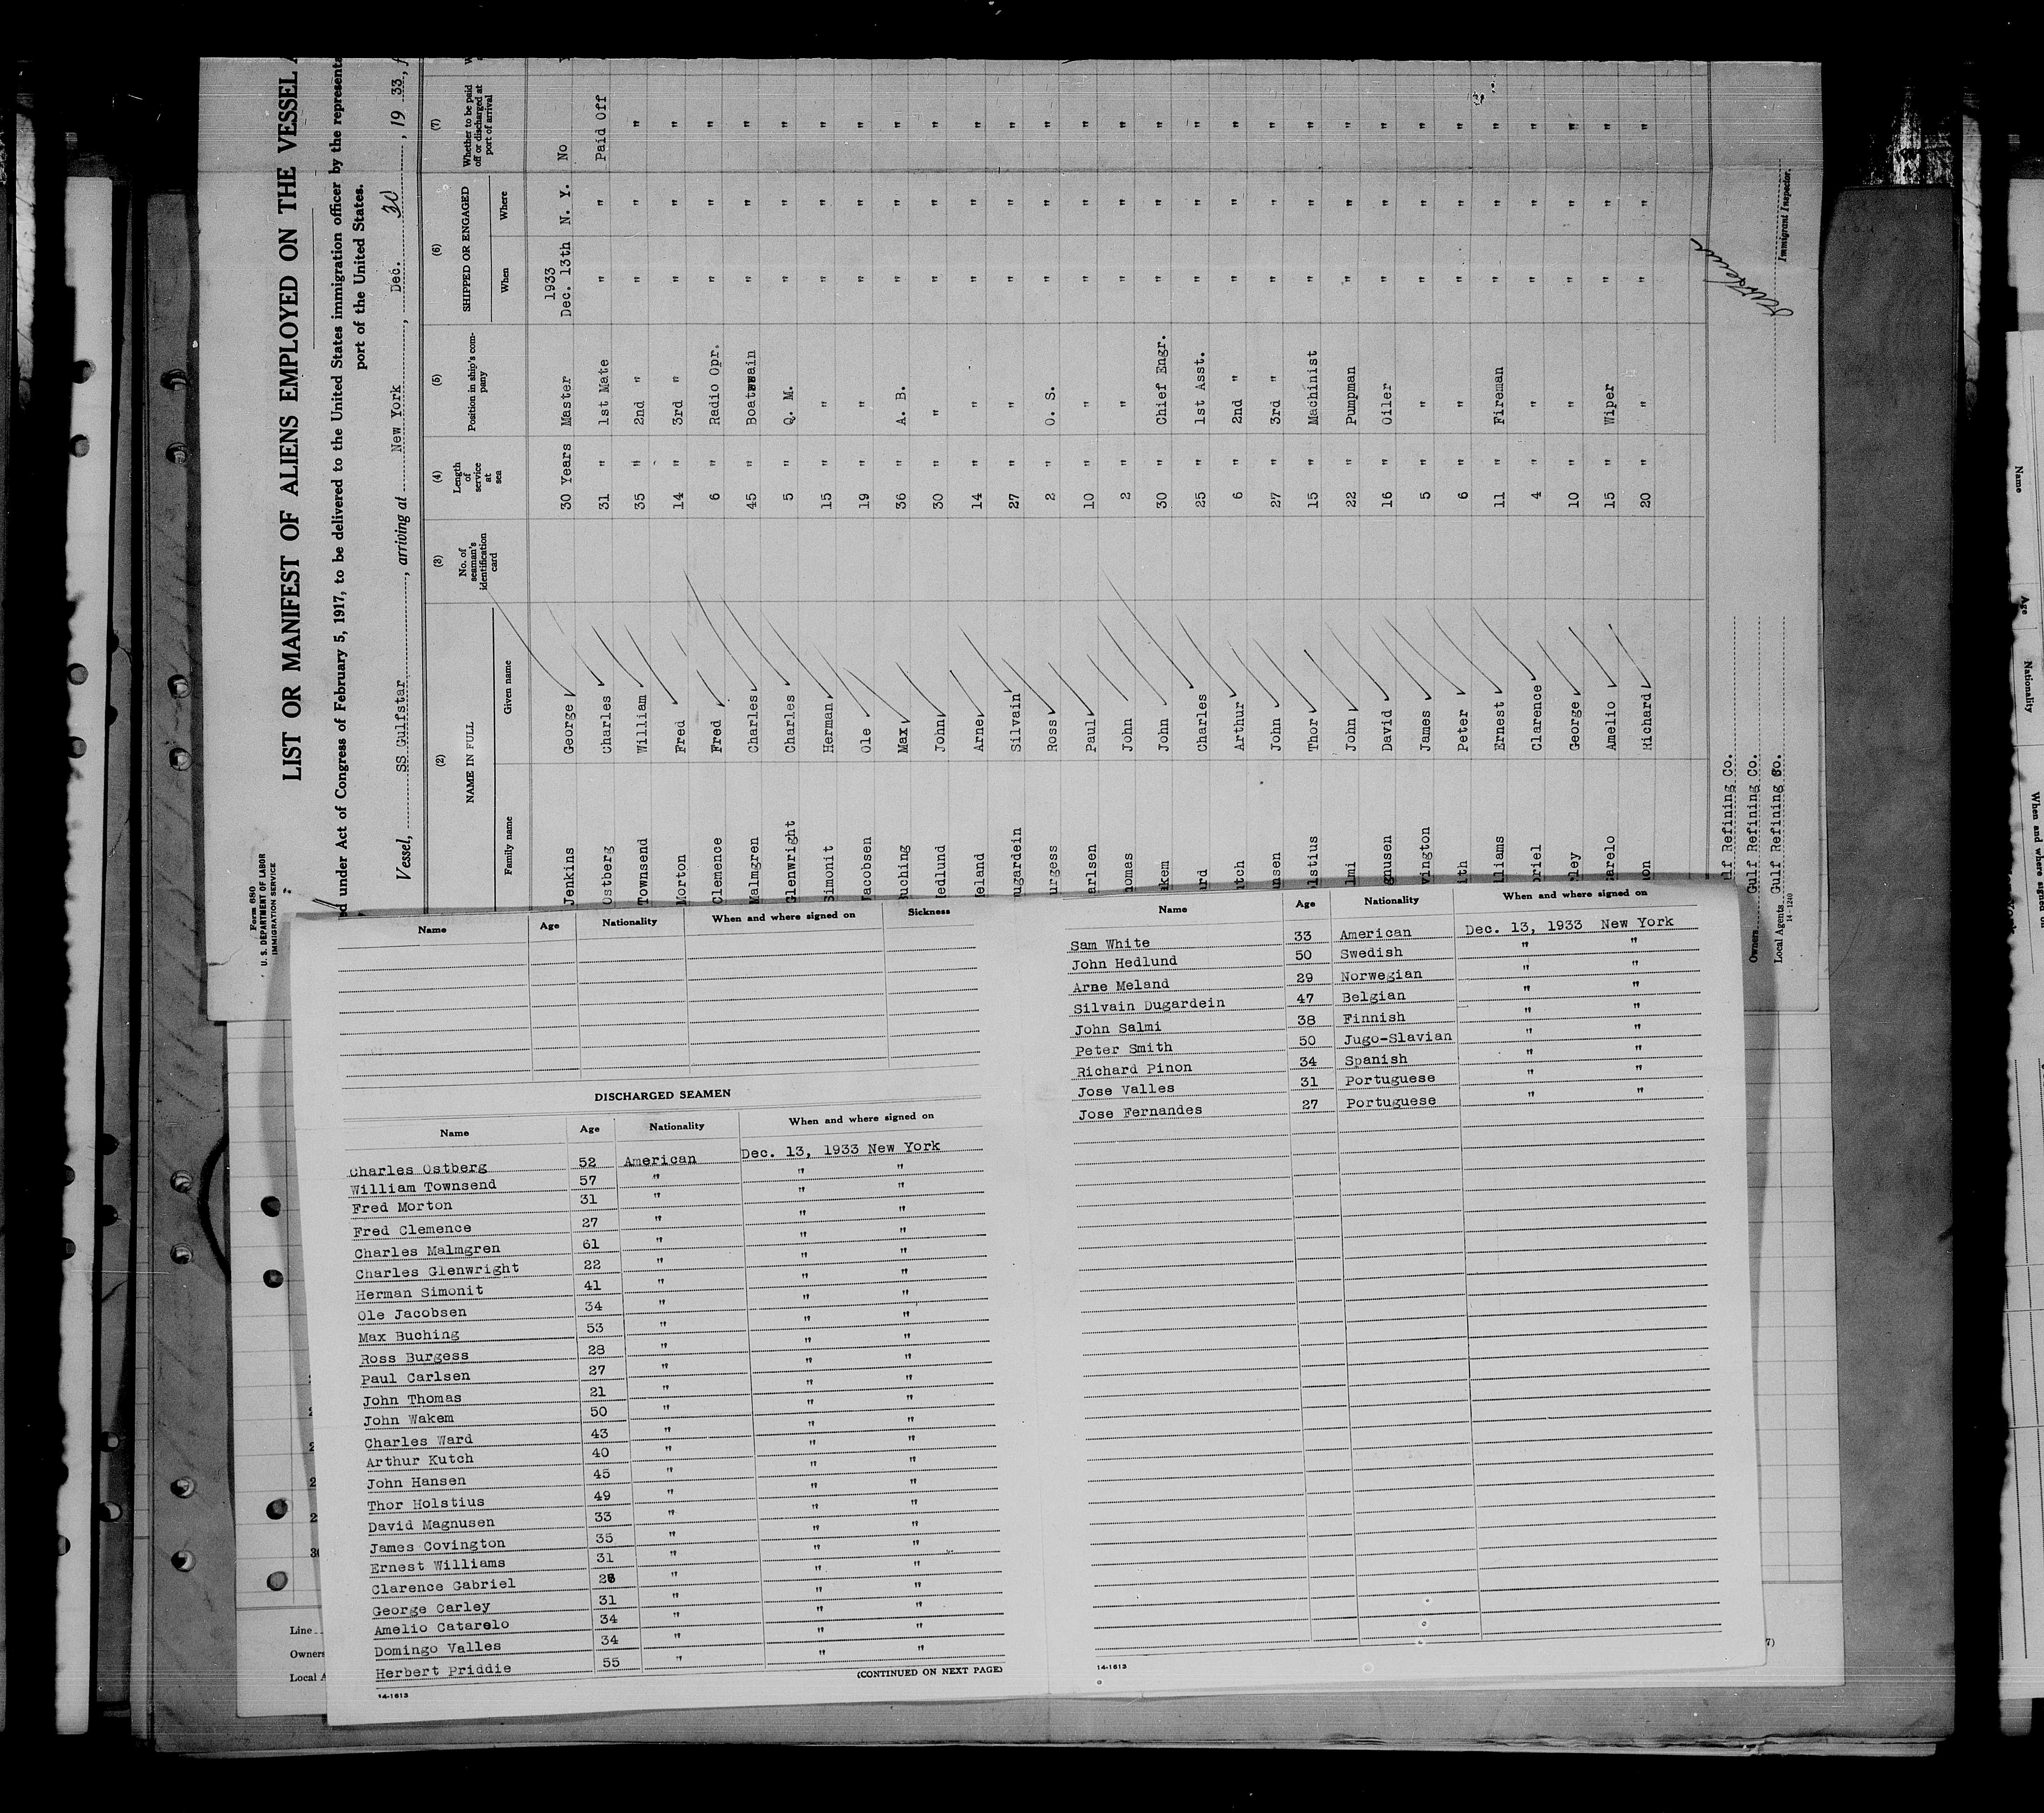 Form 680
U. S. DEPARTMENT OF LABOR
IMMIGRATION SERVICE
LIST OR MANIFEST OF ALIENS EMPLOYED ON THE VESSEL
under Act of Congress of February 5, 1917, to be delivered to the United States immigration officer by the
port of the United States.
Vessel, SS Gulfstar, arriving at New York, Dec. 30, 1933,
(2) (3) (4) (5) (6) (7)
NAME IN FULL
Family name Given name
No. of seaman's identification card
Length of service at sea
Position in ship's company
SHIPPED OR ENGAGED
When Where
Whether to be paid off or discharged at port of arrival
1933
Jenkins George 30 Years Master Dec. 13th N. Y. No
Ostberg Charles 31 " 1st Mate " " Paid Off
Townsend William 35 " 2nd " " " "
Morton Fred 14 " 3rd " " " "
Clemence Fred 6 " Radio Opr. " " "
Malmgren Charles 45 " Boatswain " " "
Glenwright Charles 5 " Q. M. " " "
Simonit Herman 15 " " " " "
Jacobsen Ole 19 " " " " "
uching Max 36 " A. B. " " "
edlund John 30 " " " " "
eland Arne 14 " " " " "
ugardein Silvain 27 " " " " "
urgess Ross 2 " O. S. " " "
arlsen Paul 10 " " " " "
homas John 2 " " " " "
kem John 30 " Chief Engr. " " "
rd Charles 25 " 1st Asst. " " "
tch Arthur 6 " 2nd " " " "
nsen John 27 " 3rd " " " "
lstius Thor 15 " Machinist " " "
lmi John 22 " Pumpman " " "
gnusen David 16 " Oiler " " "
vington James 5 " " " " "
ith Peter 6 " " " " "
lliams Ernest 11 " Fireman " " "
briel Clarence 4 " " " " "
ley George 10 " " " " "
arelo Amelio 15 " Wiper " " "
on Richard 20 " " " " "
lf Refining Co.
Owners Gulf Refining Co.
Local Agents Gulf Refining Co.
14-1240
Immigrant Inspector.
Name Age Nationality When and where signed on Sickness
DISCHARGED SEAMEN
Name Age Nationality When and where signed on
Charles Ostberg 52 American Dec. 13, 1933 New York
William Townsend 57 " " "
Fred Morton 31 " " "
Fred Clemence 27 " " "
Charles Malmgren 61 " " "
Charles Glenwright 22 " " "
Herman Simonit 41 " " "
Ole Jacobsen 34 " " "
Max Buching 53 " " "
Ross Burgess 28 " " "
Paul Carlsen 27 " " "
John Thomas 21 " " "
John Wakem 50 " " "
Charles Ward 43 " " "
Arthur Kutch 40 " " "
John Hansen 45 " " "
Thor Holstius 49 " " "
David Magnusen 33 " " "
James Covington 35 " " "
Ernest Williams 31 " " "
Clarence Gabriel 28 " " "
George Carley 31 " " "
Amelio Catarelo 34 " " "
Domingo Valles 34 " " "
Herbert Priddie 55 " " "
(CONTINUED ON NEXT PAGE)
14-1613
Name Age Nationality When and where signed on
Sam White 33 American Dec. 13, 1933 New York
John Hedlund 50 Swedish " "
Arne Meland 29 Norwegian " "
Silvain Dugardein 47 Belgian " "
John Salmi 38 Finnish " "
Peter Smith 50 Jugo-Slavian " "
Richard Pinon 34 Spanish " "
Jose Valles 31 Portuguese " "
Jose Fernandes 27 Portuguese " "
14-1613
Line
Owners
Local A
Name
Age
Nationality
When and where signed on